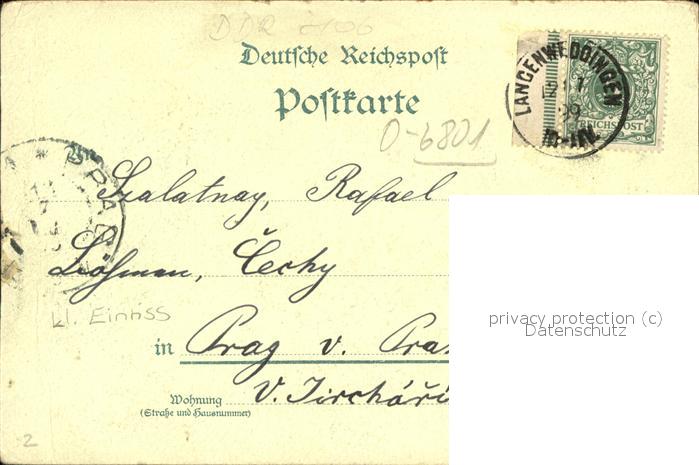 DDR
Deutsche Reichspost
Postkarte
LANGENWEDDINGEN
99
REICHSPOST
0-6801
An
Szalatnay, Rafael
PRAG
Čechy
kl. Einriss
in Prag v.
V. Jircháři
Wohnung
(Straße und Hausnummer)
privacy protection (c)
Datenschutz
2